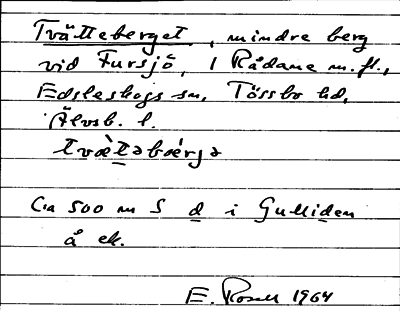 Tvätteberget, mindre berg
vid Fursjö, 1 Rådane m.fl.,
Edsleskogs sn, Tössbo hd,
Älvsb. l.
tvæ̀təbær̀jə
Ca 500 m S d i Gulliden
å ek.
E. Rosell 1964